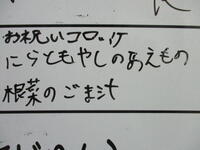 お祝いコロッケ
にらともやしのあえもの
根菜のごま汁